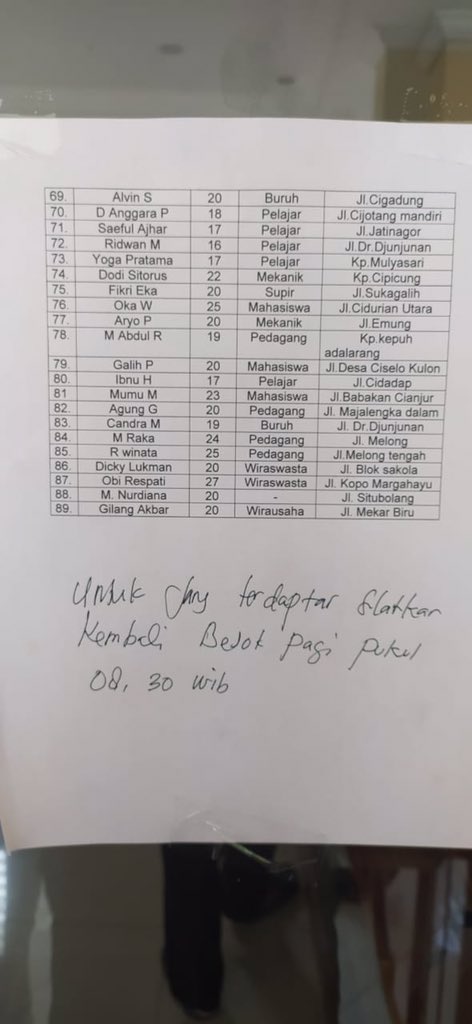 69. Alvin S 20 Buruh Jl.Cigadung
70. D Anggara P 18 Pelajar Jl.Cijotang mandiri
71. Saeful Ajhar 17 Pelajar Jl.Jatinagor
72. Ridwan M 16 Pelajar Jl.Dr.Djunjunan
73. Yoga Pratama 17 Pelajar Kp.Mulyasari
74. Dodi Sitorus 22 Mekanik Kp.Cipicung
75. Fikri Eka 20 Supir Jl.Sukagalih
76. Oka W 25 Mahasiswa Jl.Cidurian Utara
77. Aryo P 20 Mekanik Jl.Emung
78. M Abdul R 19 Pedagang Kp.kepuh
adalarang
79. Galih P 20 Mahasiswa Jl.Desa Ciselo Kulon
80. Ibnu H 17 Pelajar Jl.Cidadap
81 Mumu M 23 Mahasiswa Jl.Babakan Cianjur
82. Agung G 20 Pedagang Jl. Majalengka dalam
83. Candra M 19 Buruh Jl. Dr.Djunjunan
84. M Raka 24 Pedagang Jl. Melong
85. R winata 25 Pedagang Jl.Melong tengah
86. Dicky Lukman 20 Wiraswasta Jl. Blok sakola
87. Obi Respati 27 Wiraswasta Jl. Kopo Margahayu
88. M. Nurdiana 20 - Jl. Situbolang
89. Gilang Akbar 20 Wirausaha Jl. Mekar Biru
Untuk yang terdaptar silahkan
Kembali Besok pagi pukul
08.30 wib